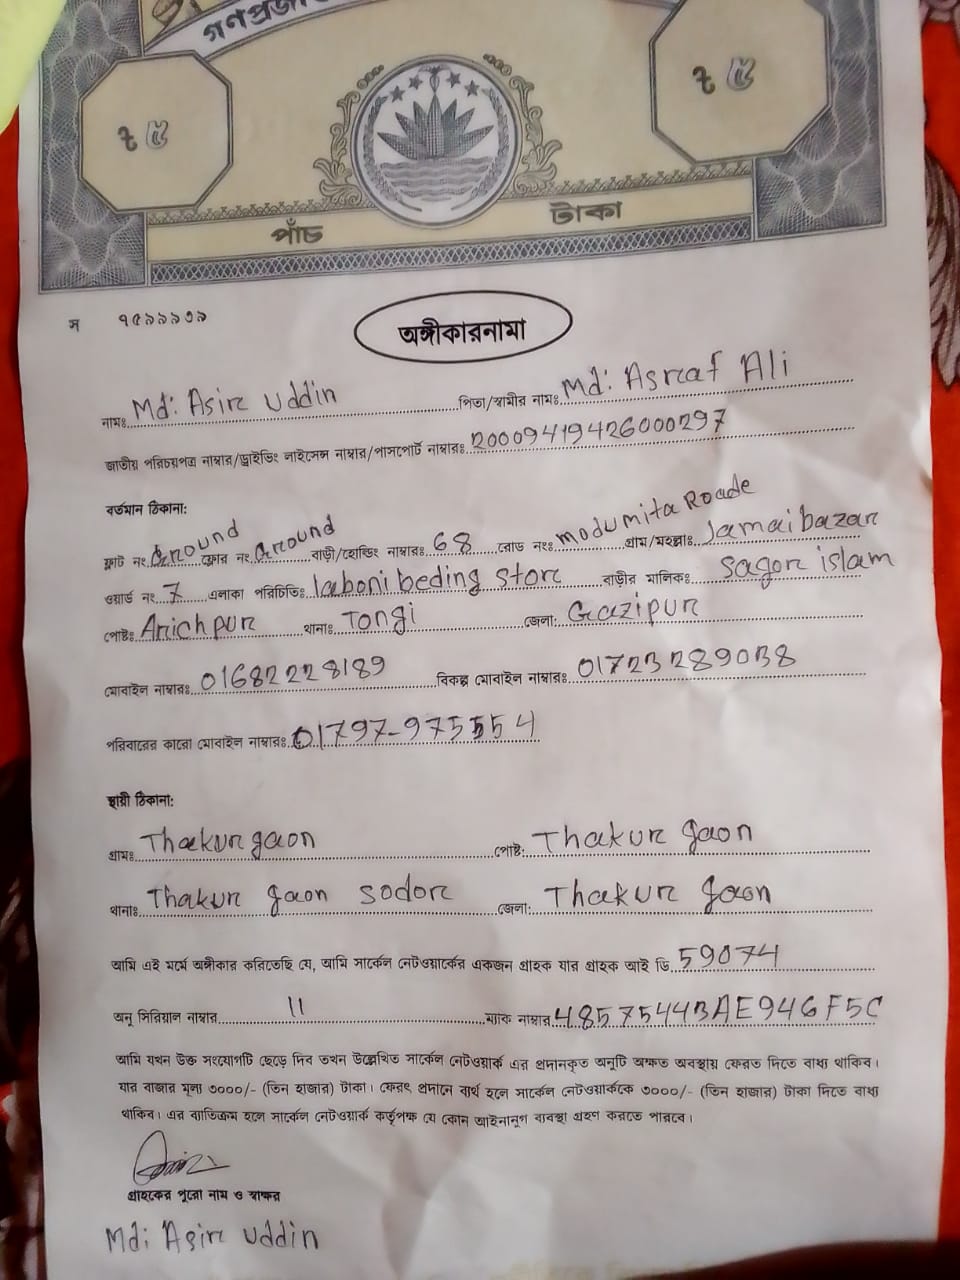 গণপ্রজা
৳ ৫ ৳ ৫
পাঁচ টাকা
স ৭৫৯৯৯৩৯
অঙ্গীকারনামা
নামঃ Md: Asir uddin পিতা/স্বামীর নামঃ Md: Asraf Ali
জাতীয় পরিচয়পত্র নাম্বার/ড্রাইভিং লাইসেন্স নাম্বার/পাসপোর্ট নাম্বারঃ 20009419426000297
বর্তমান ঠিকানা:
ফ্লাট নং Ground ফ্লোর নং Ground বাড়ী/হোল্ডিং নাম্বারঃ 68 রোড নংঃ Modumita Roade গ্রাম/মহল্লাঃ Jamai bazar
ওয়ার্ড নং 7 এলাকা পরিচিতিঃ laboni beding store বাড়ীর মালিকঃ Sagor islam
পোষ্টঃ Arichpur থানাঃ Tongi জেলা: Gazipur
মোবাইল নাম্বারঃ 01682228189 বিকল্প মোবাইল নাম্বারঃ 01723289038
পরিবারের কারো মোবাইল নাম্বারঃ 01797-975554
স্থায়ী ঠিকানা:
গ্রামঃ Thakurgaon পোষ্ট: Thakur gaon
থানাঃ Thakur gaon sodor জেলা: Thakur gaon
আমি এই মর্মে অঙ্গীকার করিতেছি যে, আমি সার্কেল নেটওয়ার্কের একজন গ্রাহক যার গ্রাহক আই ডি 59074
অনু সিরিয়াল নাম্বার 11 ম্যাক নাম্বার 48575443AE946F5C
আমি যখন উক্ত সংযোগটি ছেড়ে দিব তখন উল্লেখিত সার্কেল নেটওয়ার্ক এর প্রদানকৃত অনুটি অক্ষত অবস্থায় ফেরত দিতে বাধ্য থাকিব।
যার বাজার মূল্য ৩০০০/- (তিন হাজার) টাকা। ফেরৎ প্রদানে ব্যর্থ হলে সার্কেল নেটওয়ার্ককে ৩০০০/- (তিন হাজার) টাকা দিতে বাধ্য
থাকিব। এর ব্যতিক্রম হলে সার্কেল নেটওয়ার্ক কর্তৃপক্ষ যে কোন আইনানুগ ব্যবস্থা গ্রহণ করতে পারবে।
গ্রাহকের পুরো নাম ও স্বাক্ষর
Md: Asir uddin